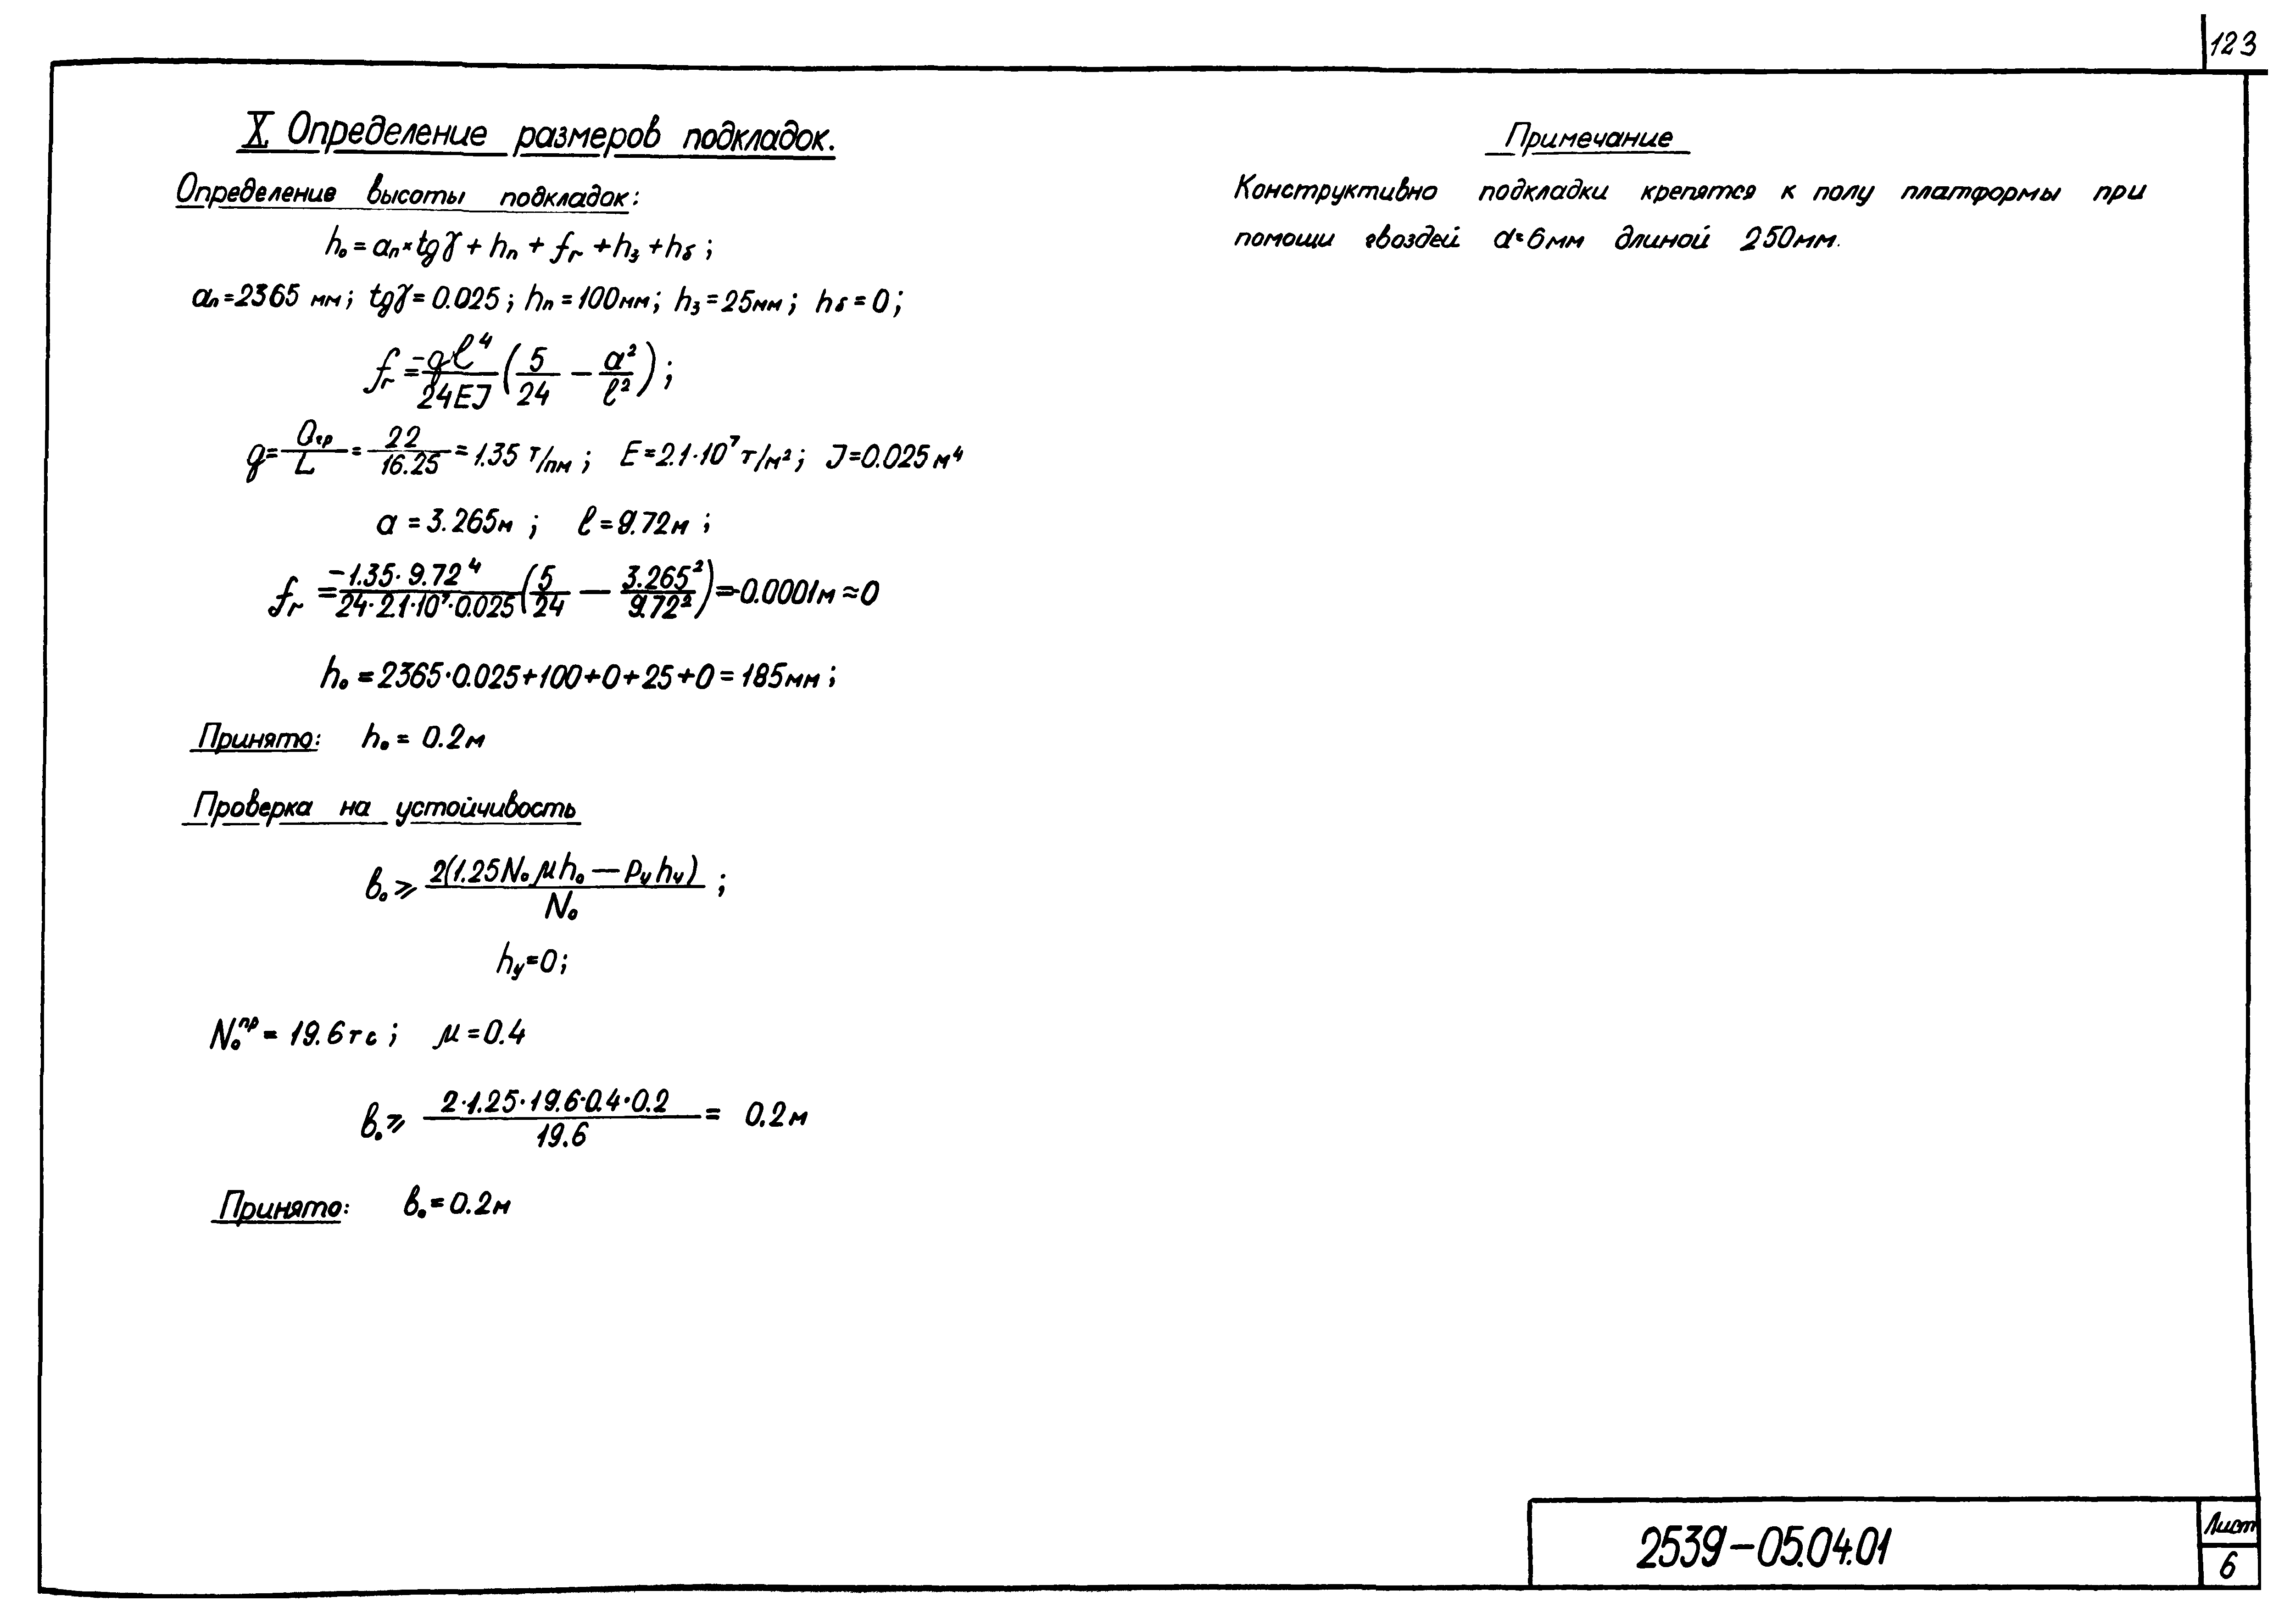 123
X. Определение размеров подкладок.
Определение высоты подкладок:
h₀ = aₙ × tgγ + hₙ + fᵣ + h₃ + hδ ;
aₙ = 2365 мм ; tgγ = 0.025 ; hₙ = 100мм ; h₃ = 25мм ; hδ = 0 ;
fᵣ = -qℓ⁴/24EJ (5/24 − a²/ℓ²) ;
q = Qгр/L = 22/16.25 = 1.35 т/пм ; E = 2.1·10⁷ т/м² ; J = 0.025 м⁴
a = 3.265м ; ℓ = 9.72м ;
fᵣ = -1.35·9.72⁴/24·2.1·10⁷·0.025 (5/24 − 3.265²/9.72²) = -0.0001м ≈ 0
h₀ = 2365·0.025+100+0+25+0 = 185мм ;
Принято: h₀ = 0.2м
Проверка на устойчивость
в₀ ⩾ 2(1.25N₀ μh₀ — Pу hу)/N₀ ;
hу = 0 ;
N₀ᵖʳ = 19.6тс ; μ = 0.4
в₀ ⩾ 2·1.25·19.6·0.4·0.2/19.6 = 0.2м
Принято: в₀ = 0.2м
Примечание
Конструктивно подкладки крепятся к полу платформы при
помощи гвоздей d=6мм длиной 250мм.
2539-05.04.01
Лист
6